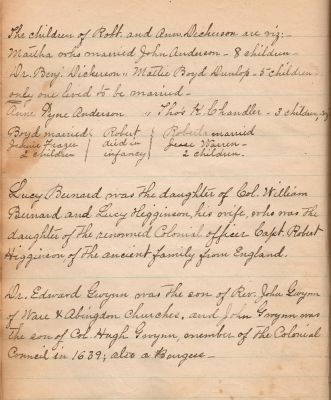 The children of Robt. and Ann Dickerson are viz:-
Martha who married John Anderson - 8 children-
Dr. Benj. Dickerson " Mattie Boyd Dunlop - 5 children-
only one lived to be married-
Anne Pyne Anderson " Thos K. Chandler - 3 children,
Boyd married Robert Roberta married
Jennie Frazer died in Jesse Warren-
2 children infancy 2 children.
Lucy Bernard was the daughter of Col. William
Bernard and Lucy Higginson, his wife, who was the
daughter of the renowned Colonial officer Capt. Robert
Higginson of the ancient family from England.
Dr. Edward Gwynn was the son of Rev. John Gwynn
of Ware & Abingdon Churches, and John Gwynn was
the son of Col. Hugh Gwynn, member of the Colonial
Council in 1639; also a Burgess-